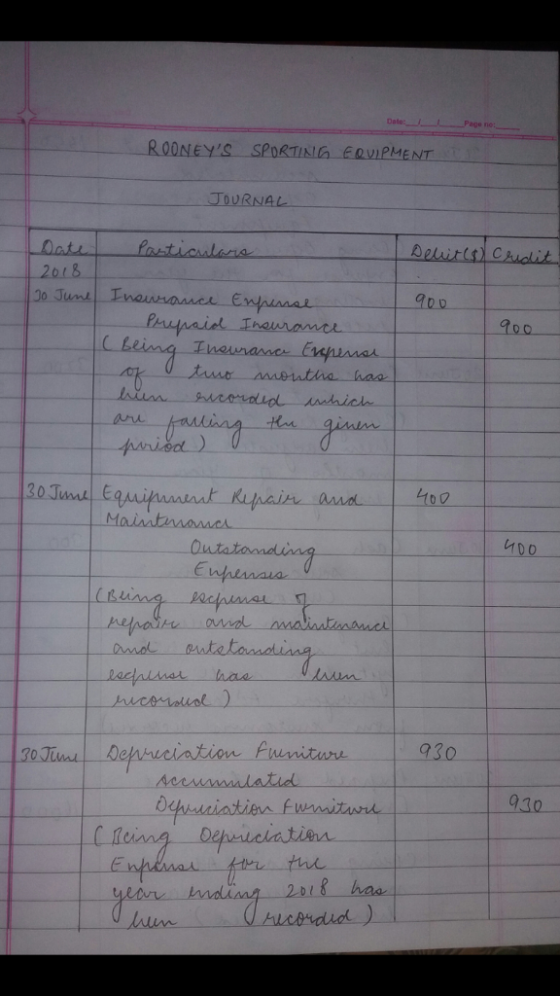 Date: __/__/__ Page no: ____
ROONEY'S SPORTING EQUIPMENT
JOURNAL
Date Particulars Debit($) Credit
2018
30 June Insurance Expense 900
Prepaid Insurance 900
( Being Insurance Expense
of two months has
been recorded which
are falling the given
period )
30 June Equipment Repair and 400
Maintenance
Outstanding 400
Expenses
( Being expense of
repair and maintenance
and outstanding
expense has been
recorded )
30 June Depreciation Furniture 930
Accumulated
Depreciation Furniture 930
( Being Depreciation
Expense for the
year ending 2018 has
been recorded )